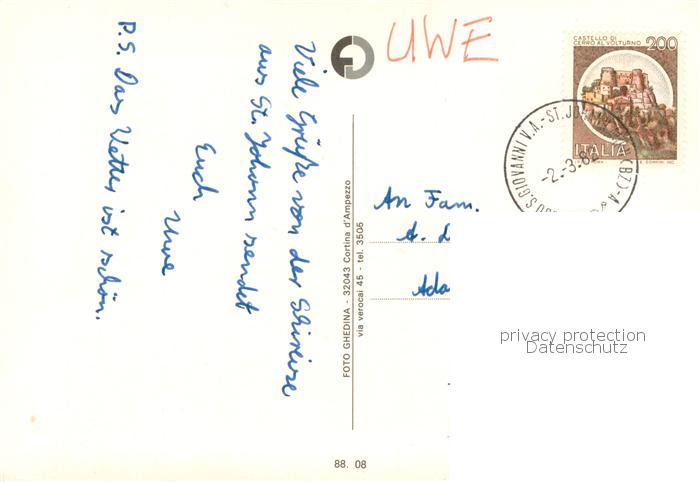 UWE
Viele Grüße von der Skireise
aus St. Johann sendet
Euch
Uwe
P.S. Das Wetter ist schön.
FOTO GHEDINA - 32043 Cortina d'Ampezzo
via verocai 45 - tel. 3505
CASTELLO DI
CERRO AL VOLTURNO 200
ITALIA
S. GIOVANNI V.A. - ST. (BZ) - A
-2.-3.82
An Fam.
A.
privacy protection
Datenschutz
88. 08